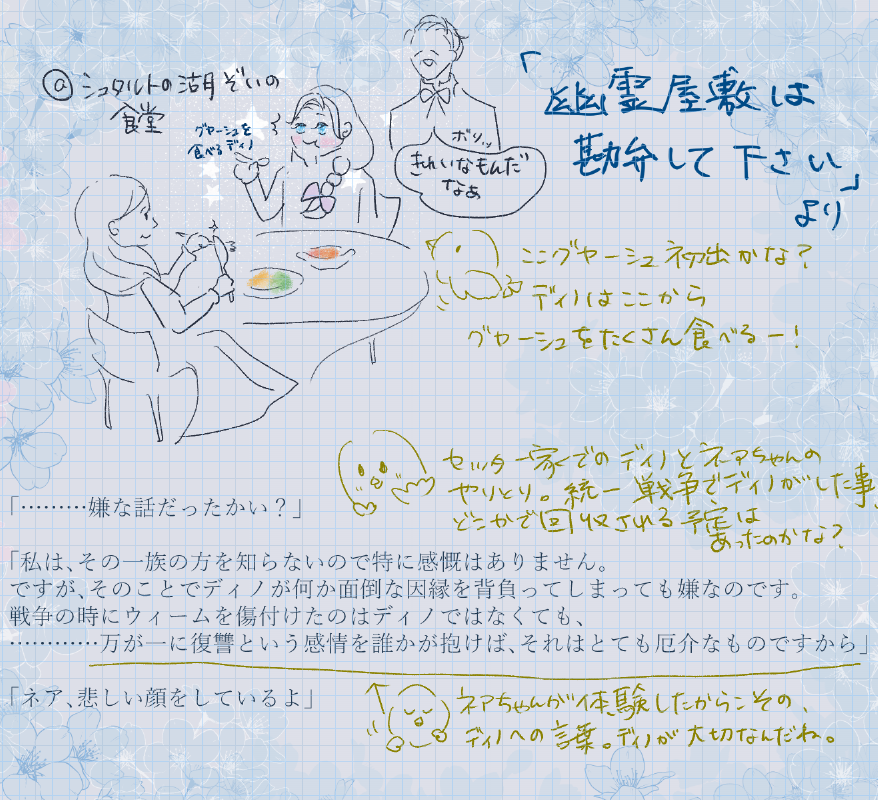 「幽霊屋敷は
勘弁して下さい」
より
@シュタルトの湖ぞいの
食堂
グヤーシュを
食べるディノ
ボソッ
きれいなもんだ
なぁ
ここグヤーシュ初出かな?
ディノはここから
グヤーシュをたくさん食べるー!
セッター家でのディノとネアちゃんの
やりとり。統一戦争でディノがした事、
どこかで回収される予定は
あったのかな?
「………嫌な話だったかい?」
「私は、その一族の方を知らないので特に感慨はありません。
ですが、そのことでディノが何か面倒な因縁を背負ってしまっても嫌なのです。
戦争の時にウィームを傷付けたのはディノではなくても、
…………万が一に復讐という感情を誰かが抱けば、それはとても厄介なものですから」
「ネア、悲しい顔をしているよ」
ネアちゃんが体験したからこその、
ディノへの言葉。ディノが大切なんだね。